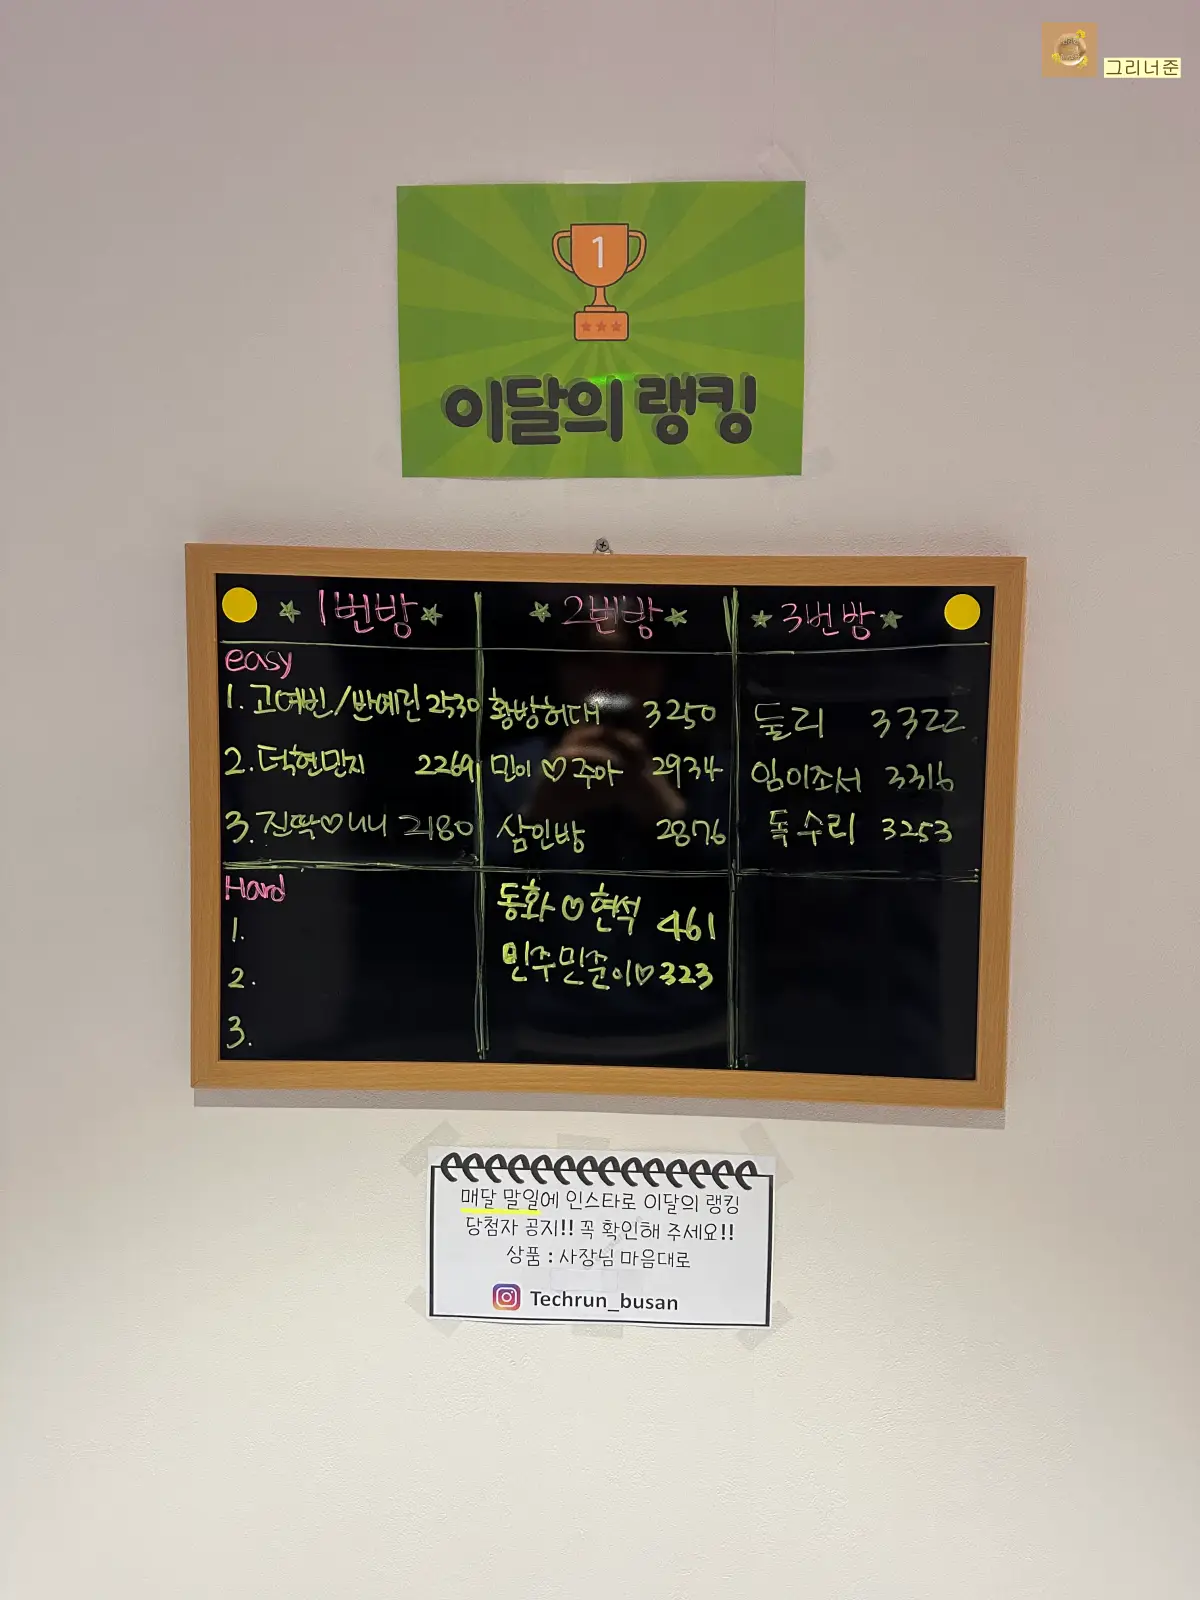 그리너준
1
이달의 랭킹
1번방 2번방 3번방
easy
1. 고여빈/반예린 2530 황방허대 3250 둘리 3322
2. 덕현만지 2269 민이♡주아 2934 임이조서 3316
3. 진딱♡니니 2180 삼인방 2876 독수리 3253
Hard
1. 동화♡현석 461
2. 민주민준이♡ 323
3.
매달 말일에 인스타로 이달의 랭킹
당첨자 공지!! 꼭 확인해 주세요!!
상품 : 사장님 마음대로
Techrun_busan